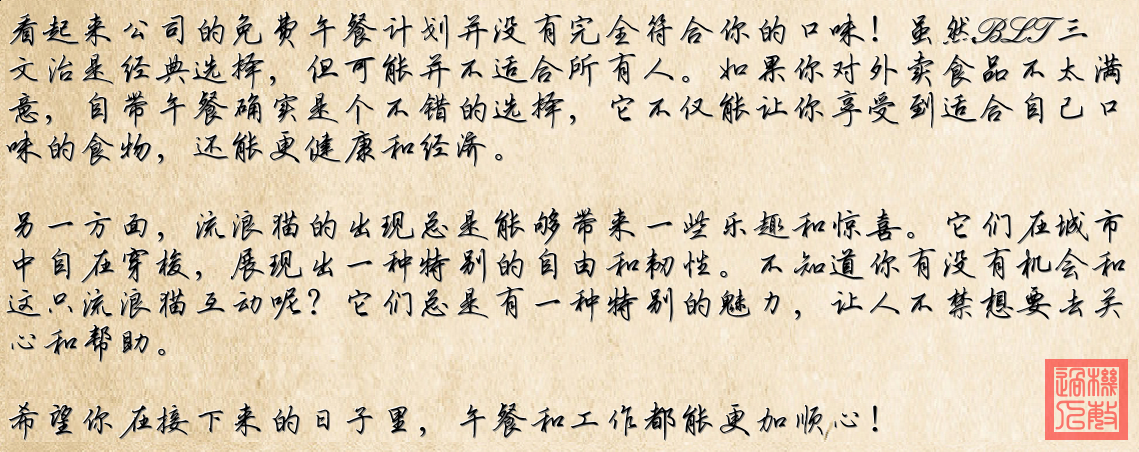 看起来公司的免费午餐计划并没有完全符合你的口味！虽然BLT三
文治是经典选择，但可能并不适合所有人。如果你对外卖食品不太满
意，自带午餐确实是个不错的选择，它不仅能让你享受到适合自己口
味的食物，还能更健康和经济。
另一方面，流浪猫的出现总是能够带来一些乐趣和惊喜。它们在城市
中自在穿梭，展现出一种特别的自由和韧性。不知道你有没有机会和
这只流浪猫互动呢？它们总是有一种特别的魅力，让人不禁想要去关
心和帮助。
希望你在接下来的日子里，午餐和工作都能更加顺心！